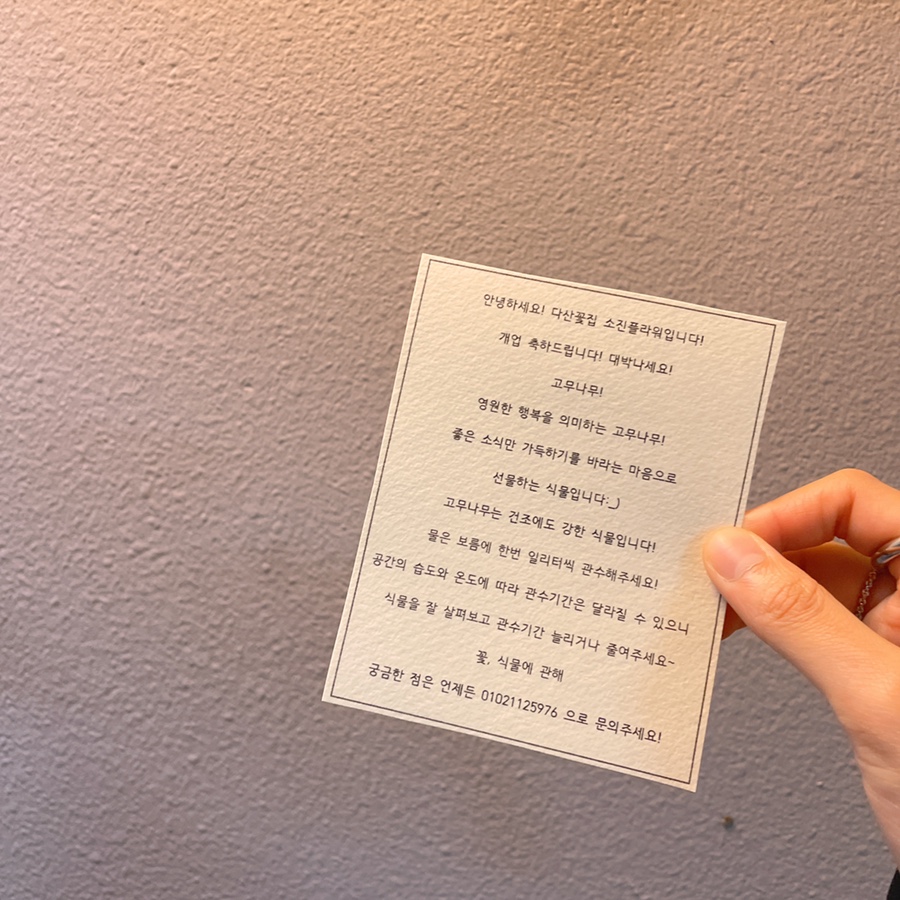 안녕하세요! 다산꽃집 소진플라워입니다!
개업 축하드립니다! 대박나세요!
고무나무!
영원한 행복을 의미하는 고무나무!
좋은 소식만 가득하기를 바라는 마음으로
선물하는 식물입니다:_)
고무나무는 건조에도 강한 식물입니다!
물은 보름에 한번 일리터씩 관수해주세요!
공간의 습도와 온도에 따라 관수기간은 달라질 수 있으니
식물을 잘 살펴보고 관수기간 늘리거나 줄여주세요~
꽃, 식물에 관해
궁금한 점은 언제든 01021125976 으로 문의주세요!